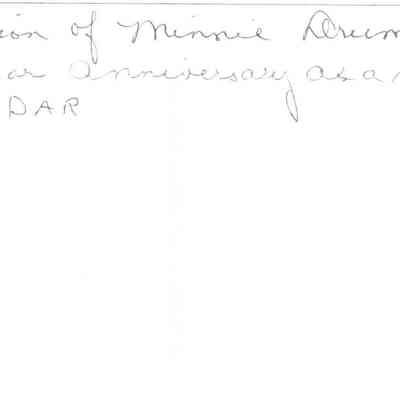 ion of Minnie Drum
ar anniversary as a
DAR